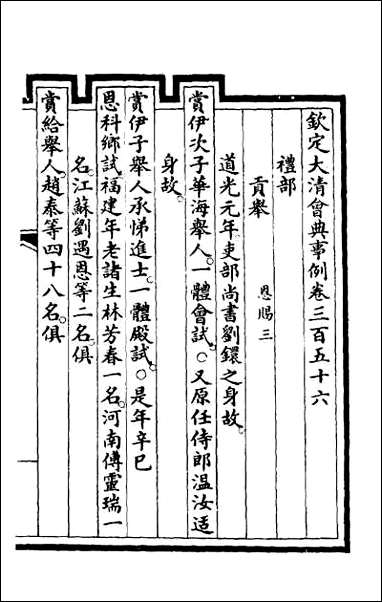 欽定大清會典事例卷三百五十六
禮部
貢舉 恩賜三
道光元年吏部尚書劉鐶之身故。
賞伊次子華海舉人。一體會試。○又原任侍郎温汝适
身故。
賞伊子舉人承悌進士。一體殿試。○是年辛巳
恩科鄉試福建年老諸生林芳春一名。河南傅靈瑞一
名。江蘇劉遇恩等二名。俱
賞給舉人。趙泰等四十八名。俱